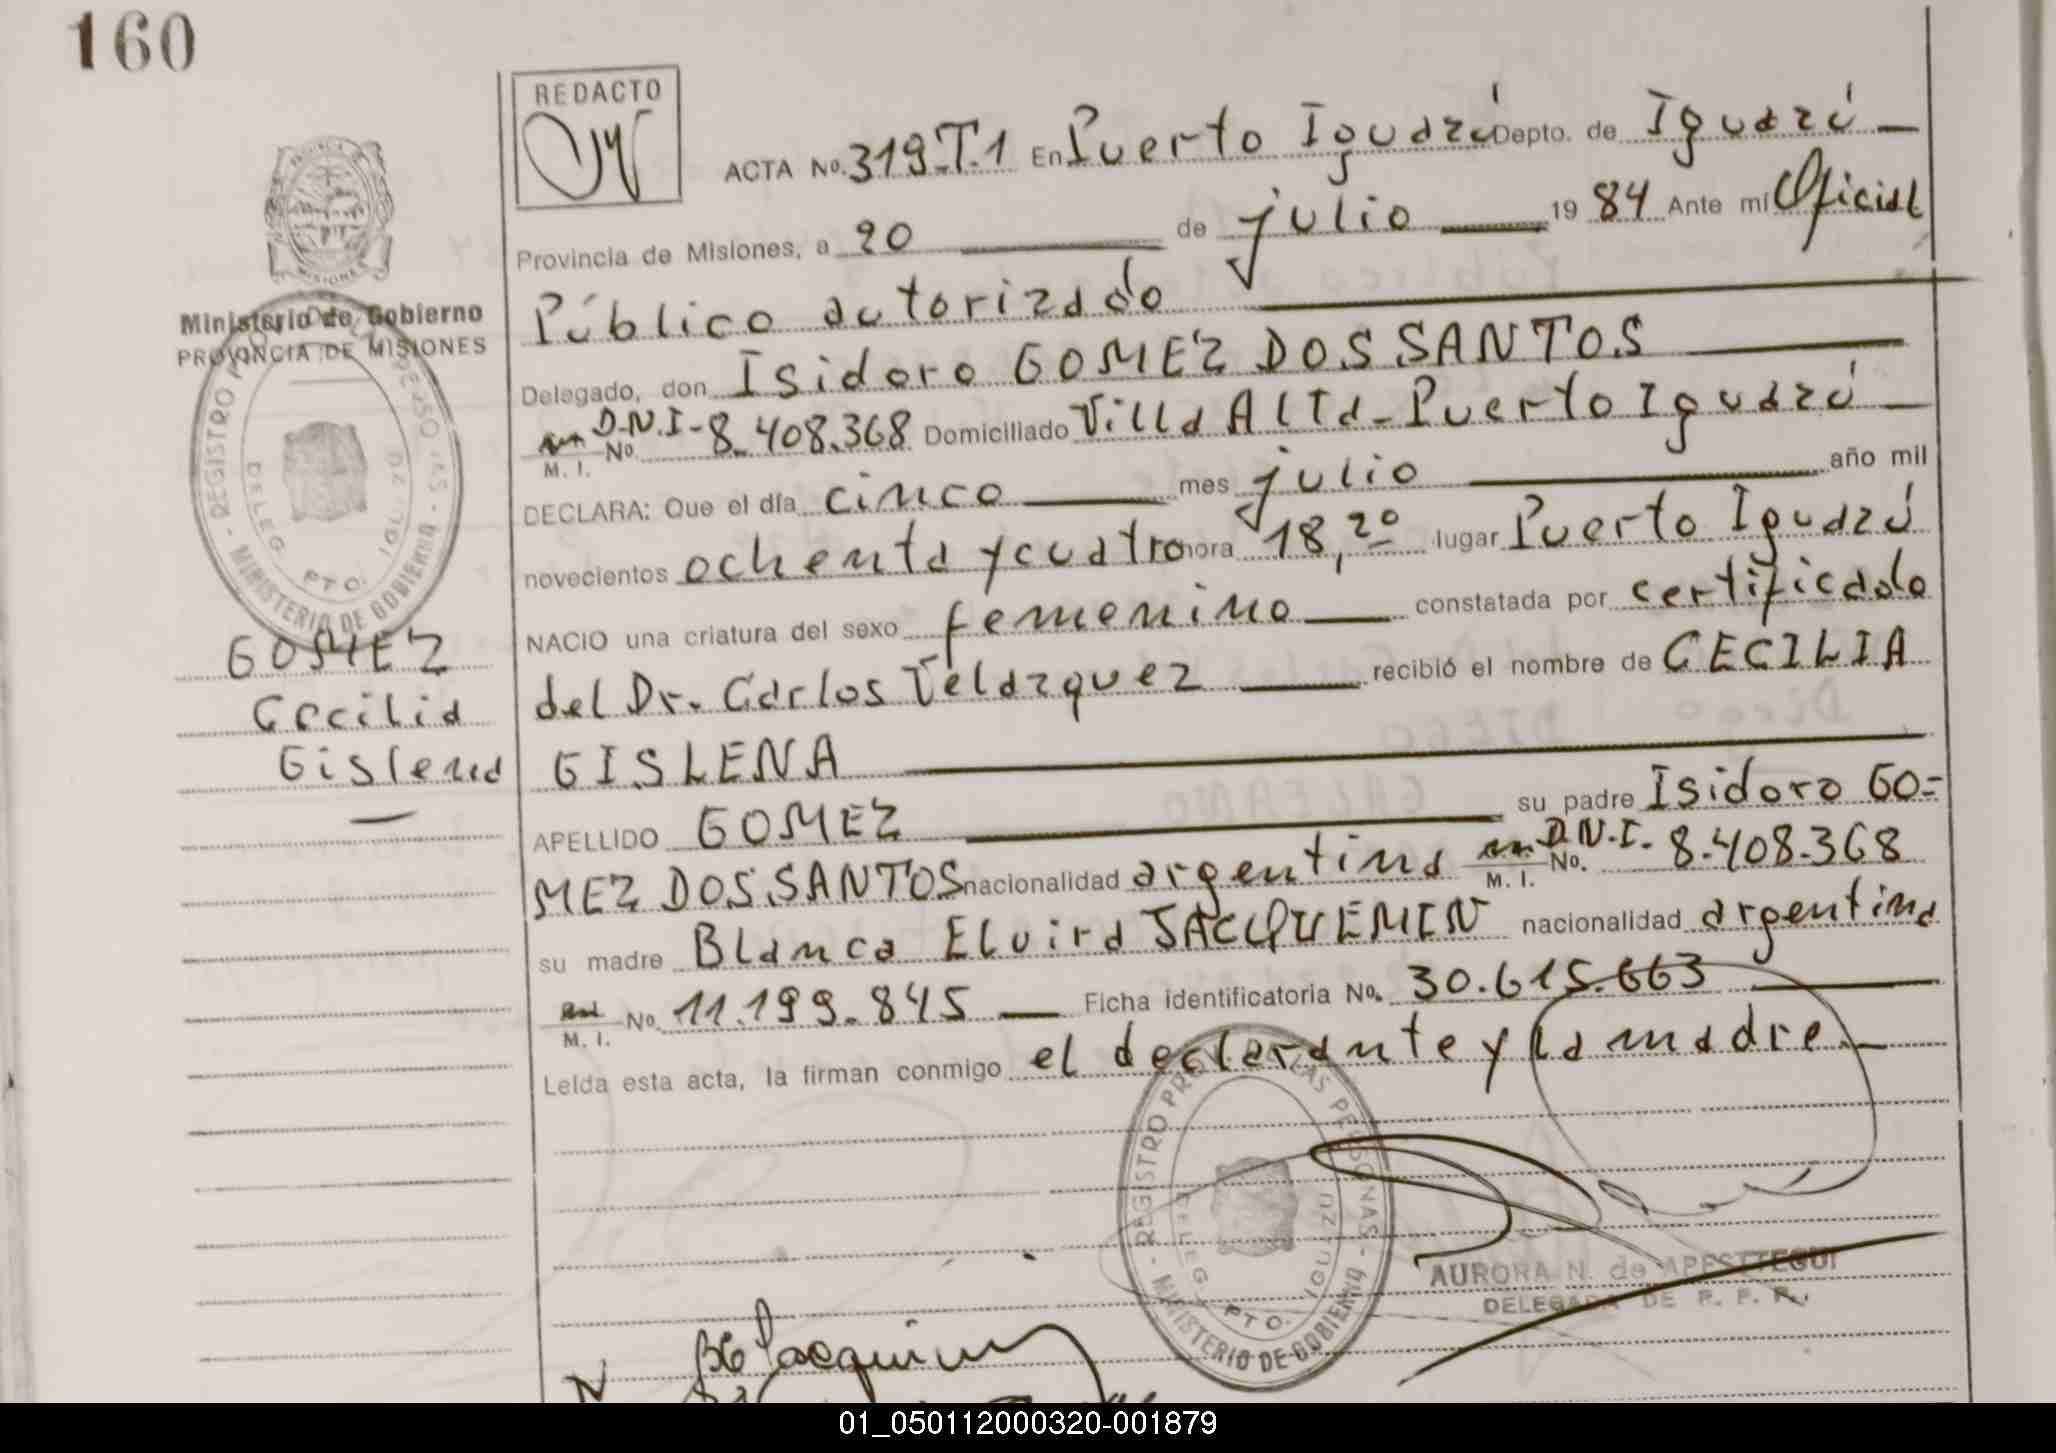 160
REDACTO
ACTA No. 319.T.1 En Puerto Iguazú Depto. de Iguazú
Provincia de Misiones, a 20 de julio 1984 Ante mí Oficial
Público autorizado
Delegado, don Isidoro GOMEZ DOS SANTOS
D.N.I-
M. I. No. 8.408.368 Domiciliado Villa Alta - Puerto Iguazú
DECLARA: Que el día cinco mes julio año mil
novecientos ochenta y cuatro hora 18,20 lugar Puerto Iguazú
NACIO una criatura del sexo femenino constatada por certificado
del Dr. Carlos Velazquez recibió el nombre de CECILIA
GISLENA
APELLIDO GOMEZ su padre Isidoro GO=
MEZ DOS SANTOS nacionalidad argentina M. I. No. D.N.I. 8.408.368
su madre Blanca Elvira JACQUEMIN nacionalidad argentina
M. I. No. 11.199.845 Ficha identificatoria No. 30.615.663
Leída esta acta, la firman conmigo el declarante y la madre.
PROVINCIA DE
MISIONES
Ministerio de Gobierno
PROVINCIA DE MISIONES
REGISTRO
DELEG. PTO. IGUAZU
MINISTERIO DE GOBIERNO
GOMEZ
Cecilia
Gislena
REGISTRO PROV. DE LAS PERSONAS
DELEG. PTO. IGUAZU
MINISTERIO DE GOBIERNO
AURORA N. de APESTTEGUI
DELEGADA DE R. P. P.
01_050112000320-001879